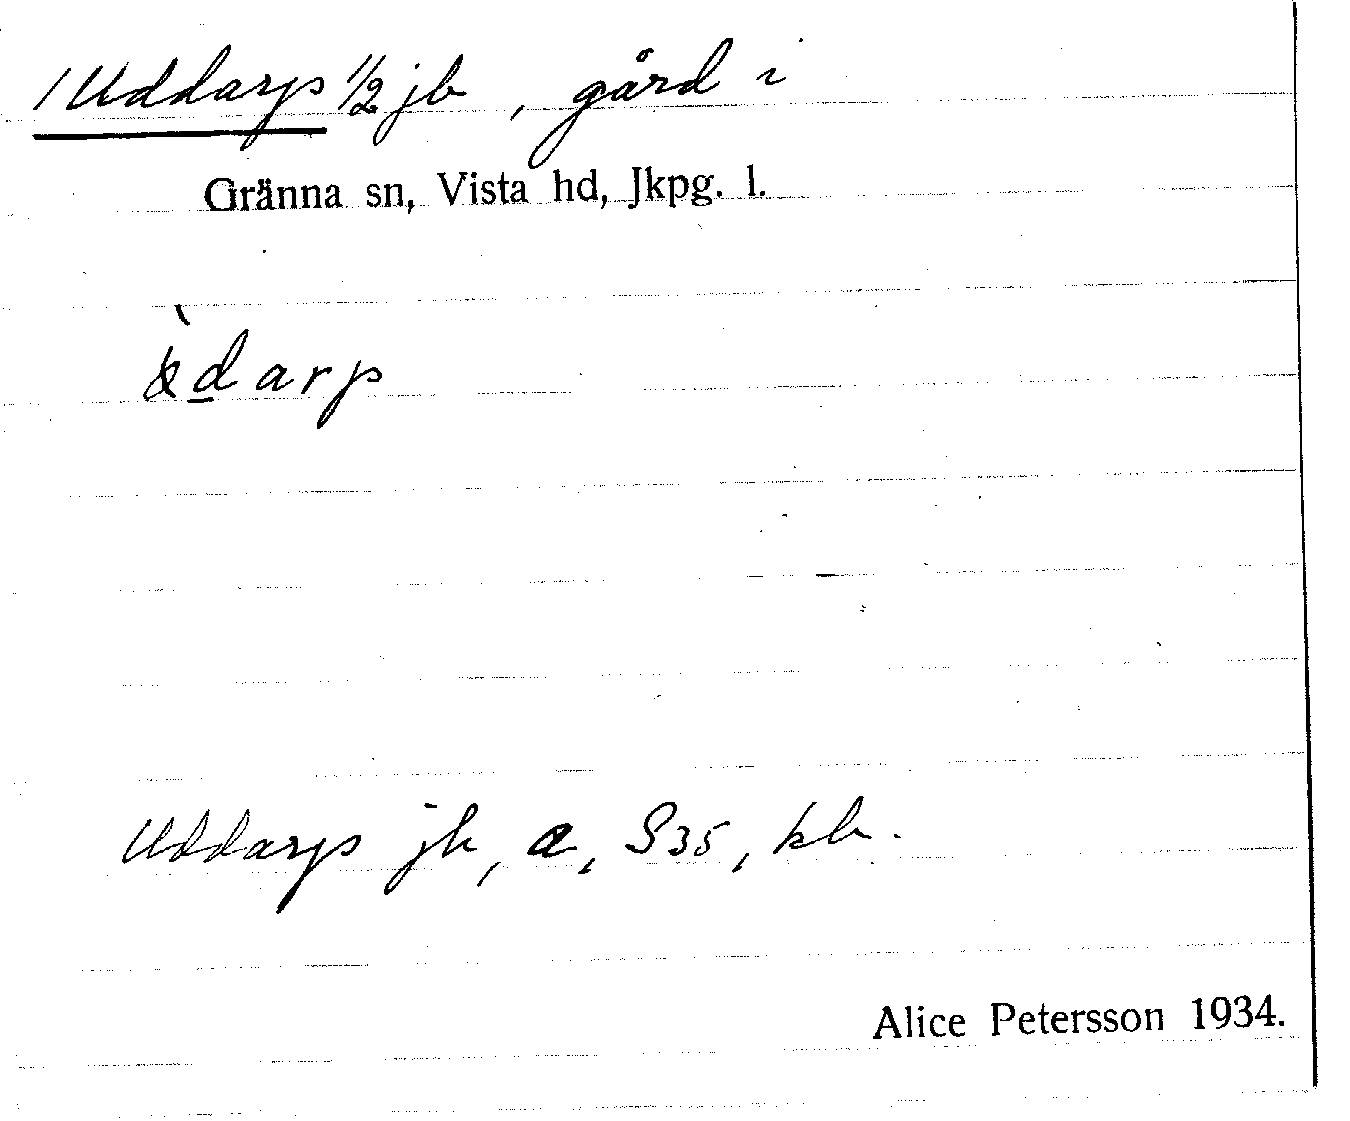 / Uddarp 1/2 jb, gård i
Gränna sn, Vista hd, Jkpg. l.
darp
Uddarp jb, a, S35, kb.
Alice Petersson 1934.